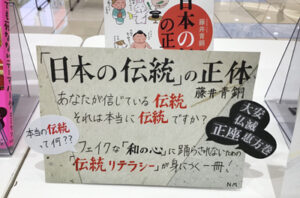 藤井青銅
日本の
の正
「日本の伝統」の正体
藤井青銅
あなたが信じている伝統
それは本当に伝統ですか?
本当の伝統
って何??
大安
仏滅
正座 恵方巻
フェイクな「和の心」に踊らされないための
「伝統リテラシー」が身につく一冊!
N.M